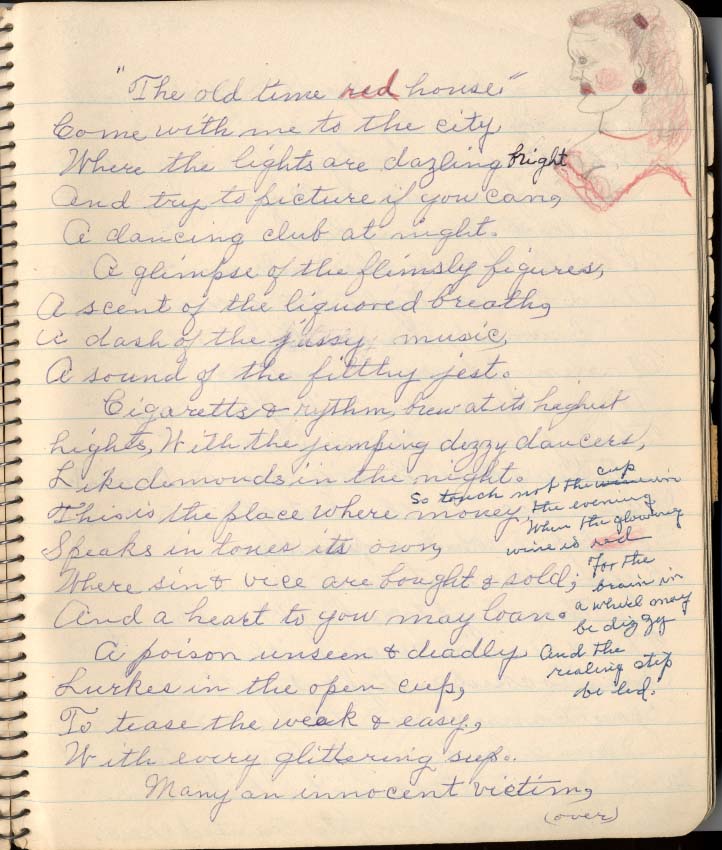 "The old time red house"
Come with me to the city,
Where the lights are dazling bright
And try to picture if you can,
A dancing club at night.
A glimpse of the flimsly figures,
A scent of the liquored breath,
A dash of the jassy music,
A sound of the filthy jest.
Cigaretts & rythm, brew at its highest
hights, With the jumping dizzy dancers,
Like demonds in the night.
This is the place where money,
Speaks in tones its own,
Where sin & vice are bought & sold;
And a heart to you may loan.
A poison unseen & deadly
Lurkes in the open cup,
To tease the weak & easy,
With every glittering sup.
Many an innocent victim,
(over)
So touch not the cup
wine in
the evening
When the glowing
wine is red
For the
brain in
a while may
be dizzy
And the
realing step
be led.